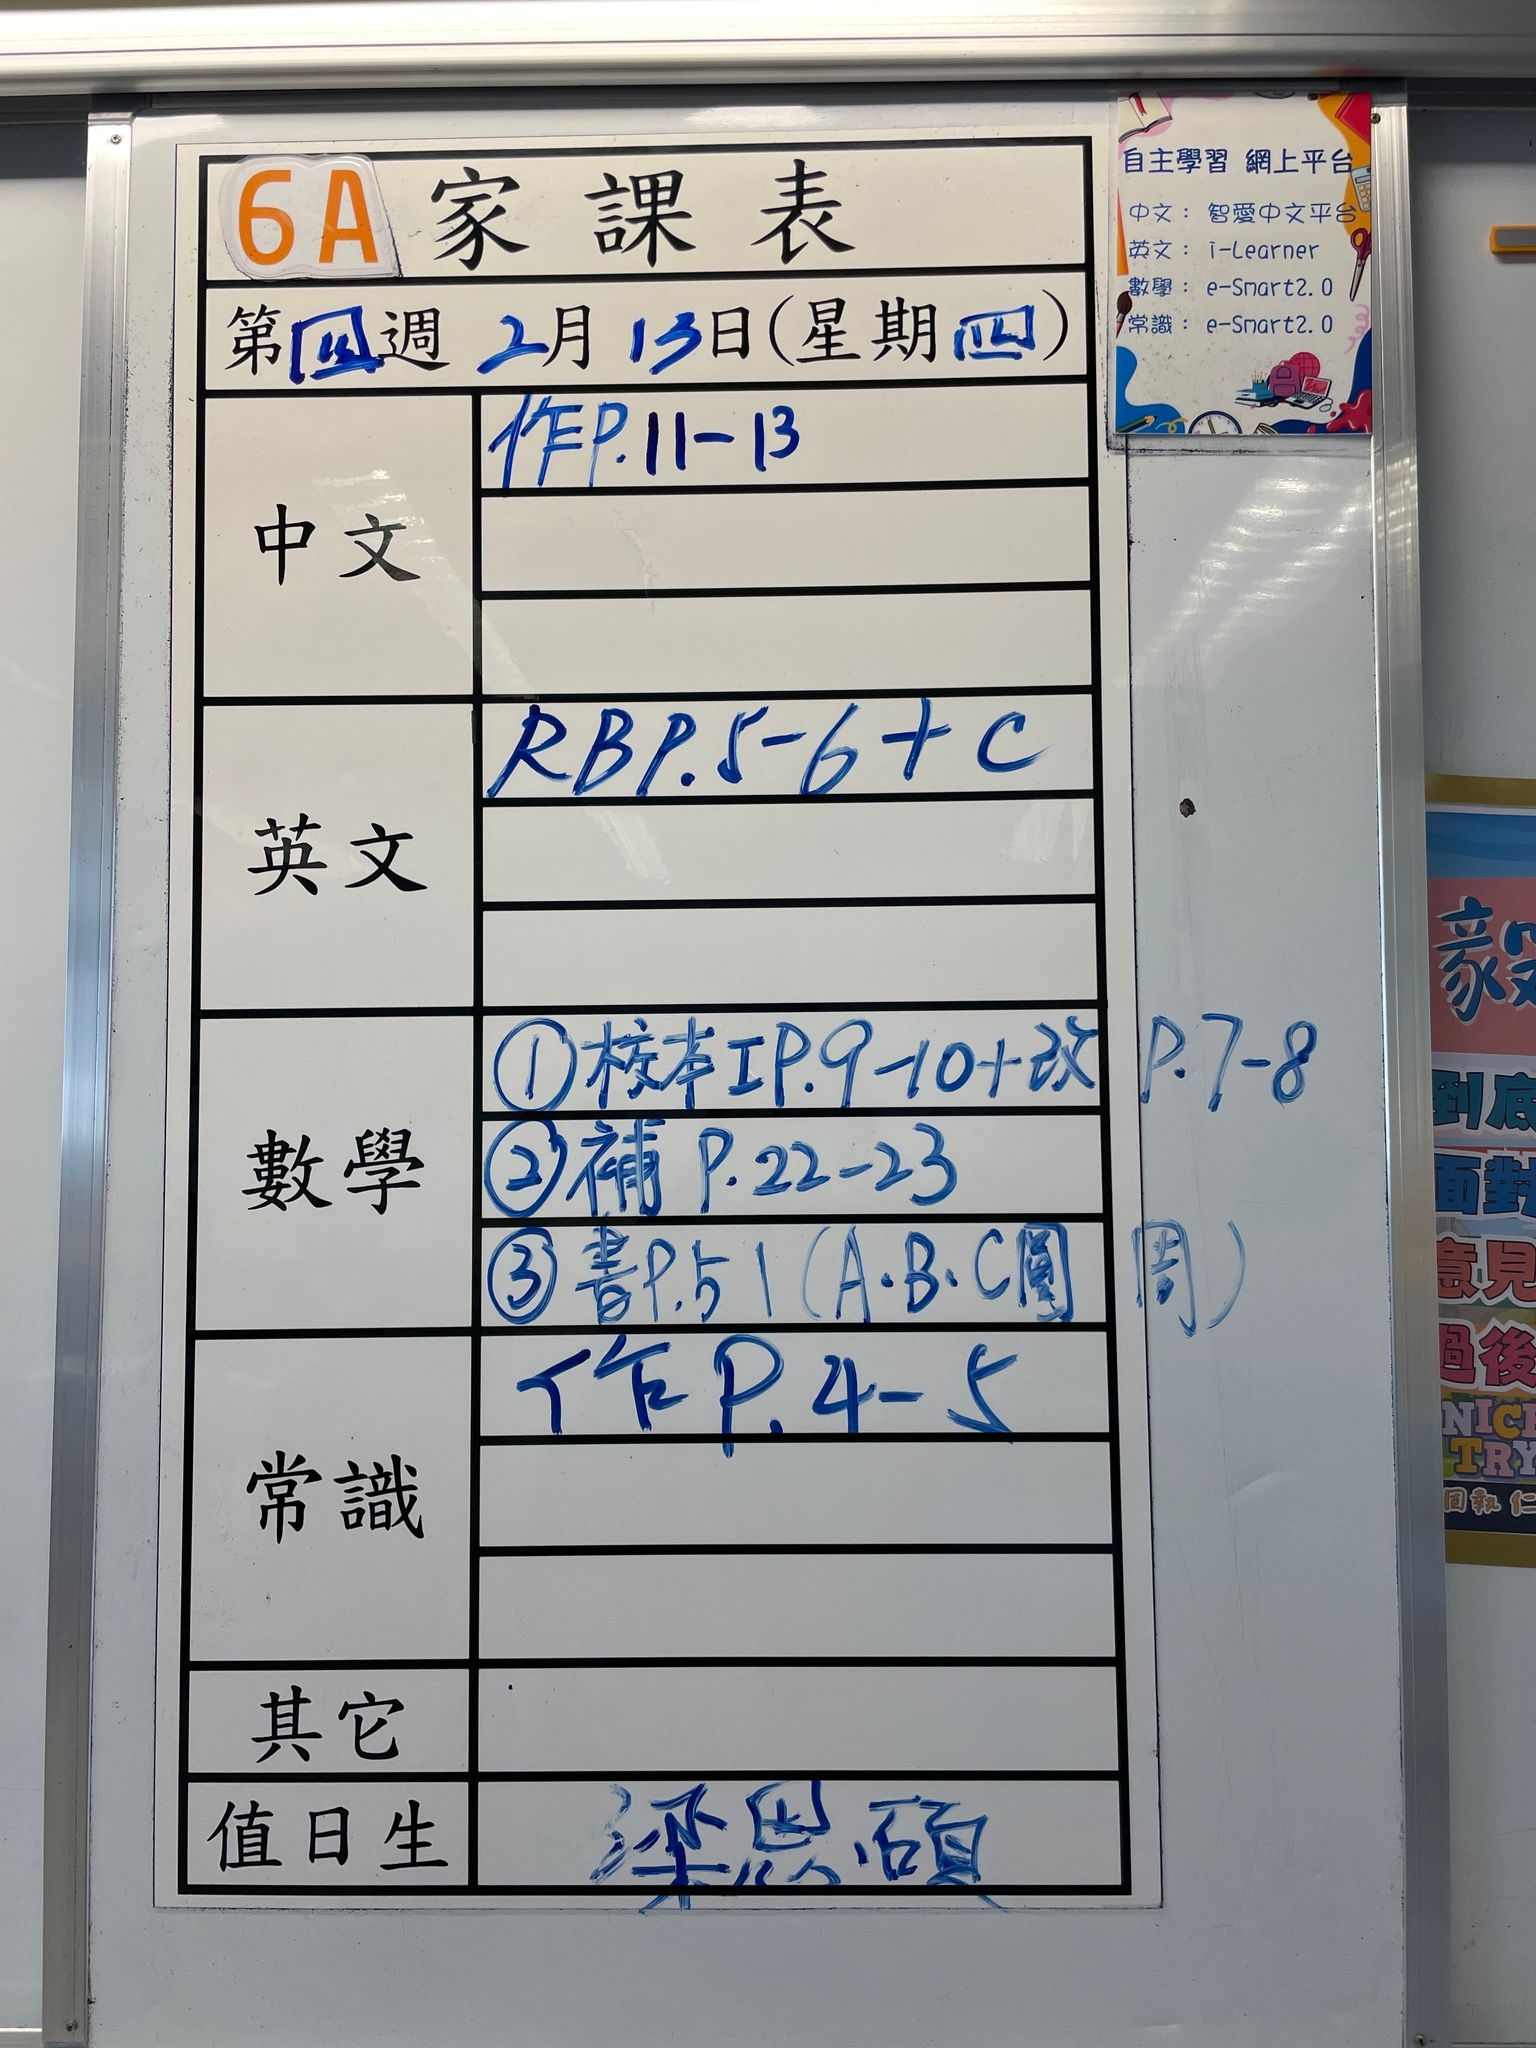 6A 家課表
第四週 2月13日(星期四)
中文
作P.11-13
英文
RB P.5-6+C
數學
①校本工P.9-10+改 P.7-8
②補 P.22-23
③書P.51(A.B.C圓周)
常識
作P.4-5
其它
值日生
梁恩碩
自主學習 網上平台
中文：智愛中文平台
英文：i-Learner
數學：e-Smart2.0
常識：e-Smart2.0
到底
面對
意見
過後
NICE
TRY
固執 仁